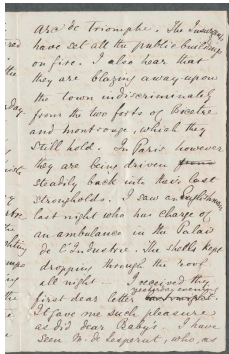 Arc de Triomphe. The Insurgents
have set all the public buildings
on fire. I also hear that
they are blazing away upon
the town indiscriminately
from the two forts of Bicetre
and Montrouge, which they
still hold. In Paris however
they are being driven from
steadily back into their last
strongholds. I saw an Englishman
last night who has charge of
an ambulance in the Palais
de l'Industrie. The shells kept
dropping through the roof
all night — I received thy
first dear letter yesterday evening
it gave me such pleasure
as did dear Baby's. I have
seen M. de Lesperut, who, as